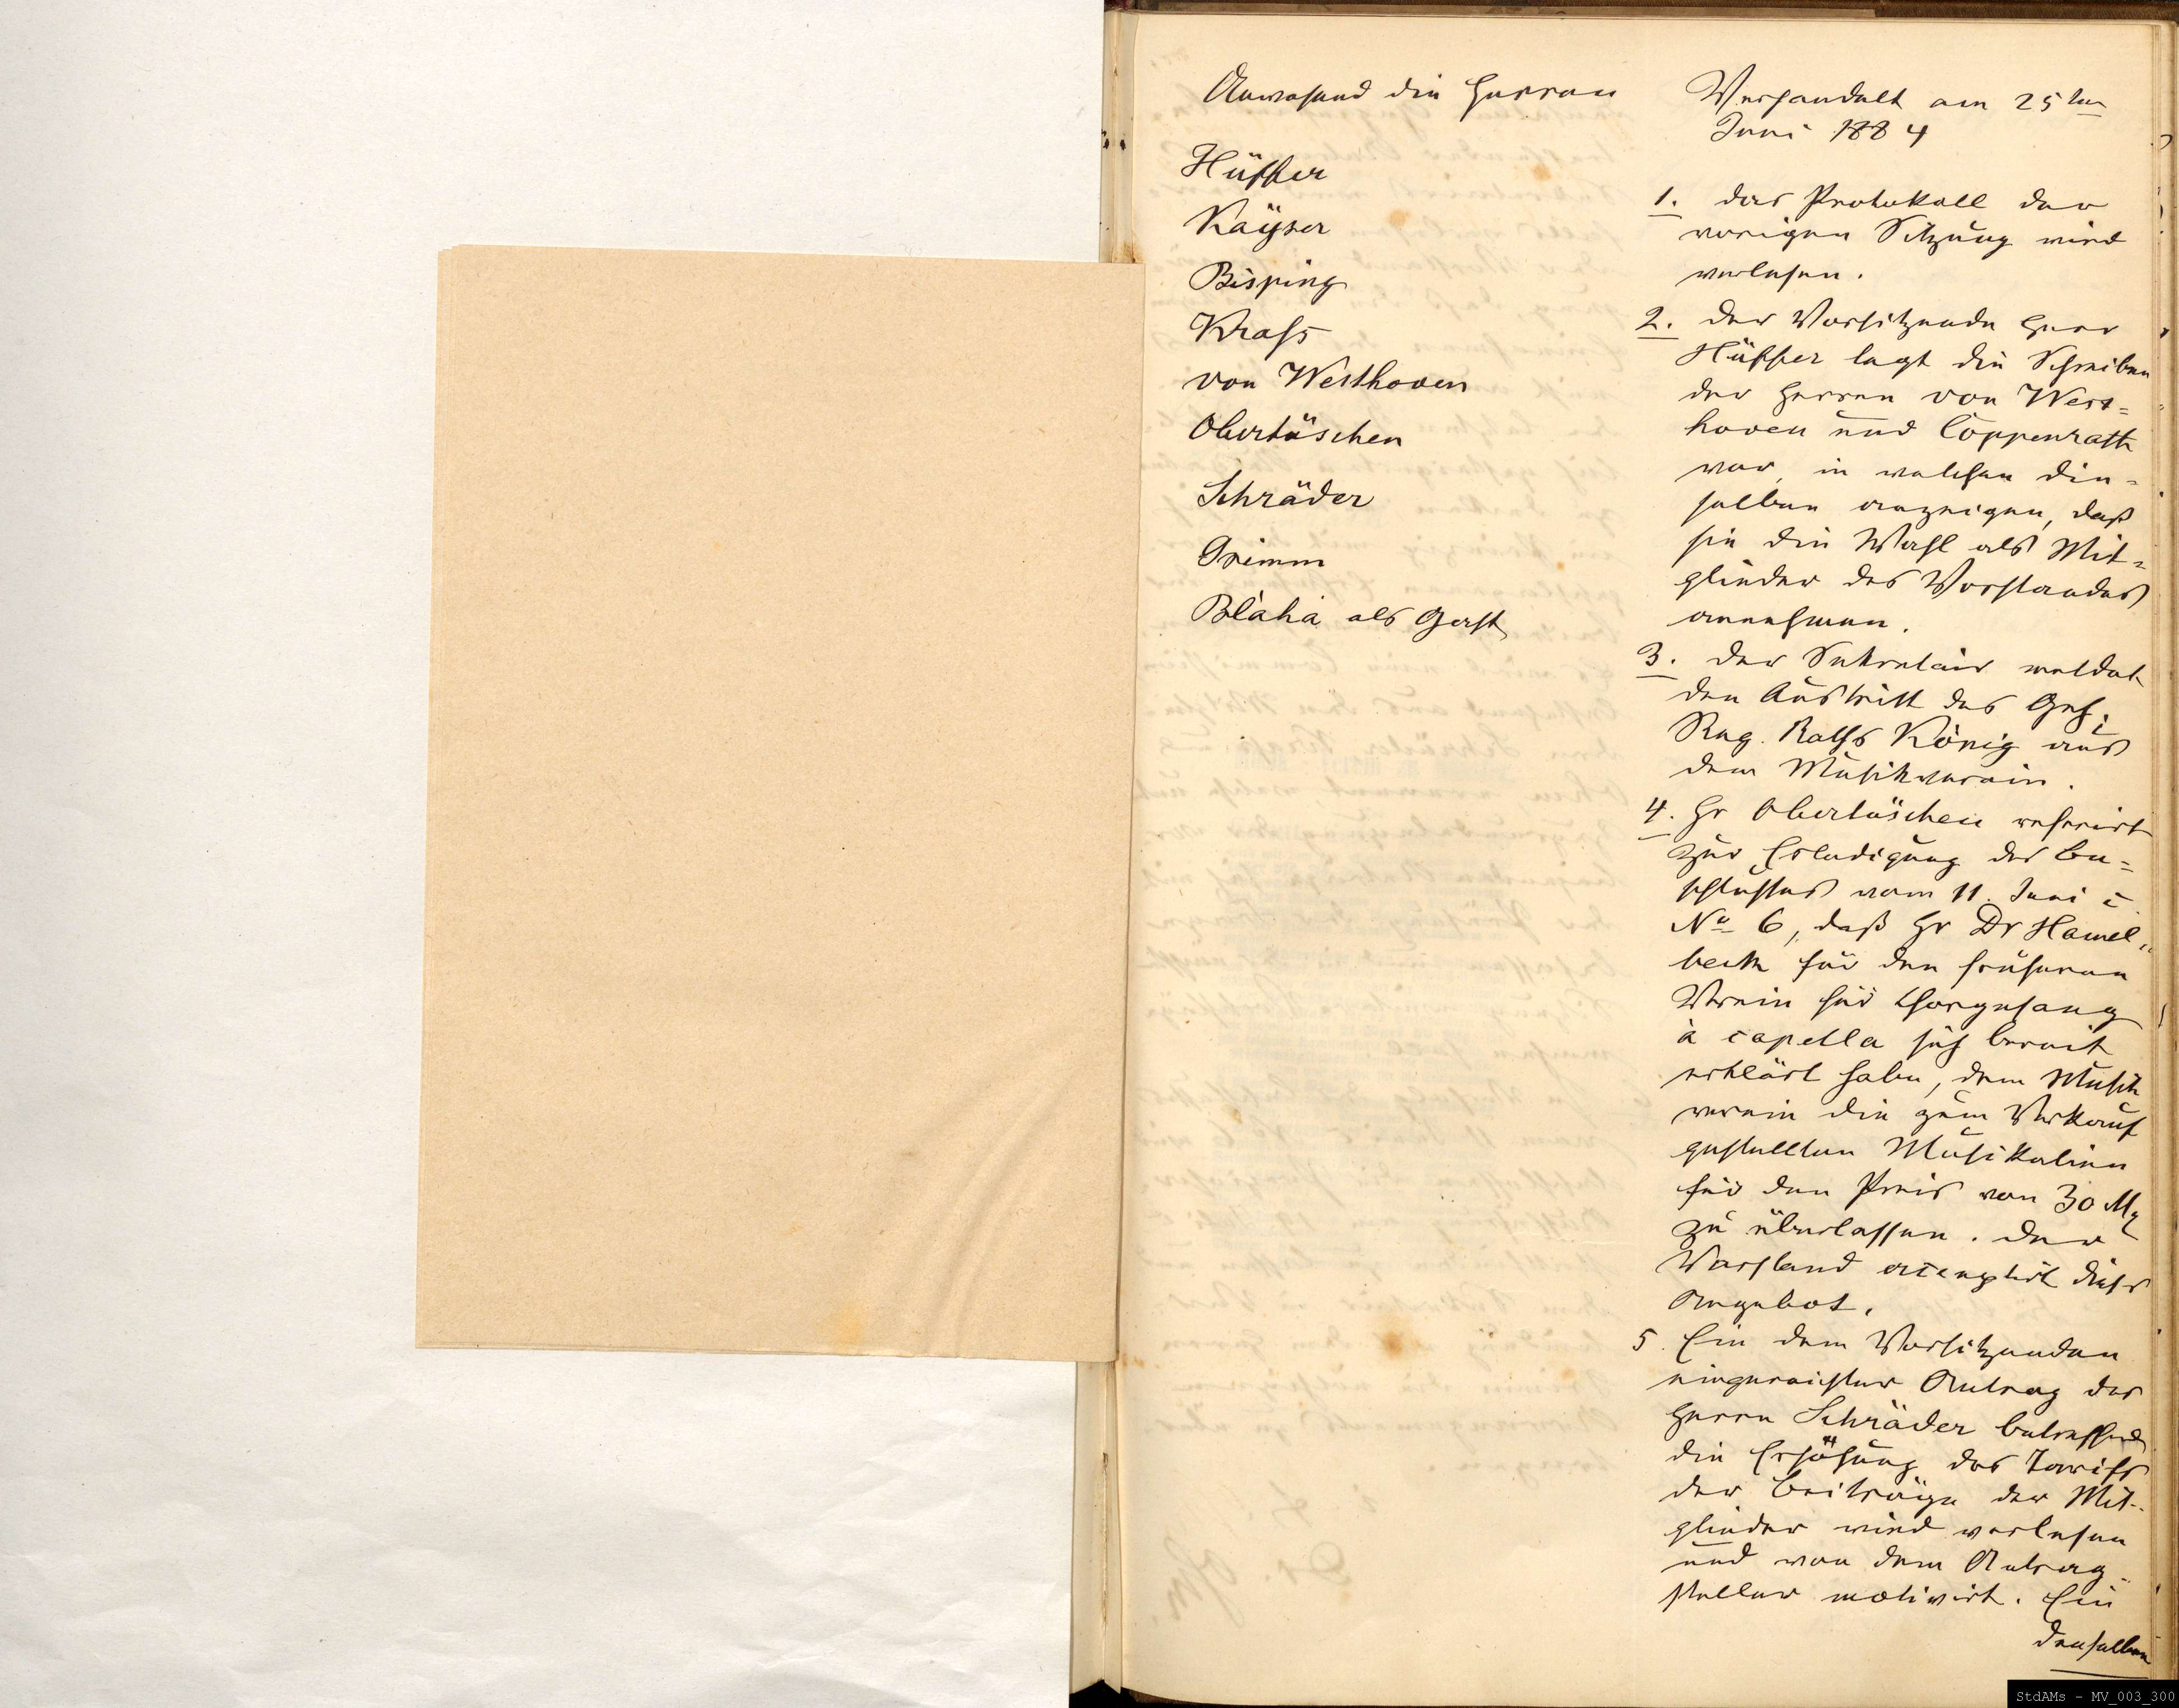 Anwesend die Herren
Hüffer
Kayser
Bisping
Krafs
von Westhoven
Obertüschen
Schräder
Grimm
Blaha als Gast
Verhandelt am 25ten
Juni 1884
1. Das Protokoll der
vorigen Sitzung wird
verlesen.
2. Der Vorsitzende Herr
Hüffer legt die Schreiben
der Herren von West=
hoven und Coppenrath
vor, in welchen die=
selben anzeigen, daß
sie die Wahl als Mit=
glieder des Vorstandes
annehmen.
3. Der Sekretair meldet
den Austritt des Geh.
Reg. Raths König aus
dem Musikverein.
4. Hr Obertüschen referirt
zur Erledigung des Be=
schlusses vom 11. Juni c
No 6, daß Hr Dr Hamel=
beck für den früheren
Verein für Chorgesang
à capella sich bereit
erklärt habe, dem Musik
verein die zum Verkauf
gestellten Musikalien
für den Preis von 30 Mk
zu überlassen. Der
Vorstand acceptirt dieses
Angebot.
5. Ein dem Vorsitzenden
eingereichter Antrag des
Herrn Schräder betreffend
die Erhöhung des Tarifs
der Beiträge der Mit=
glieder wird verlesen
und von dem Antrag=
steller motivirt. Ein
denselben
StdAMs - MV_003_300